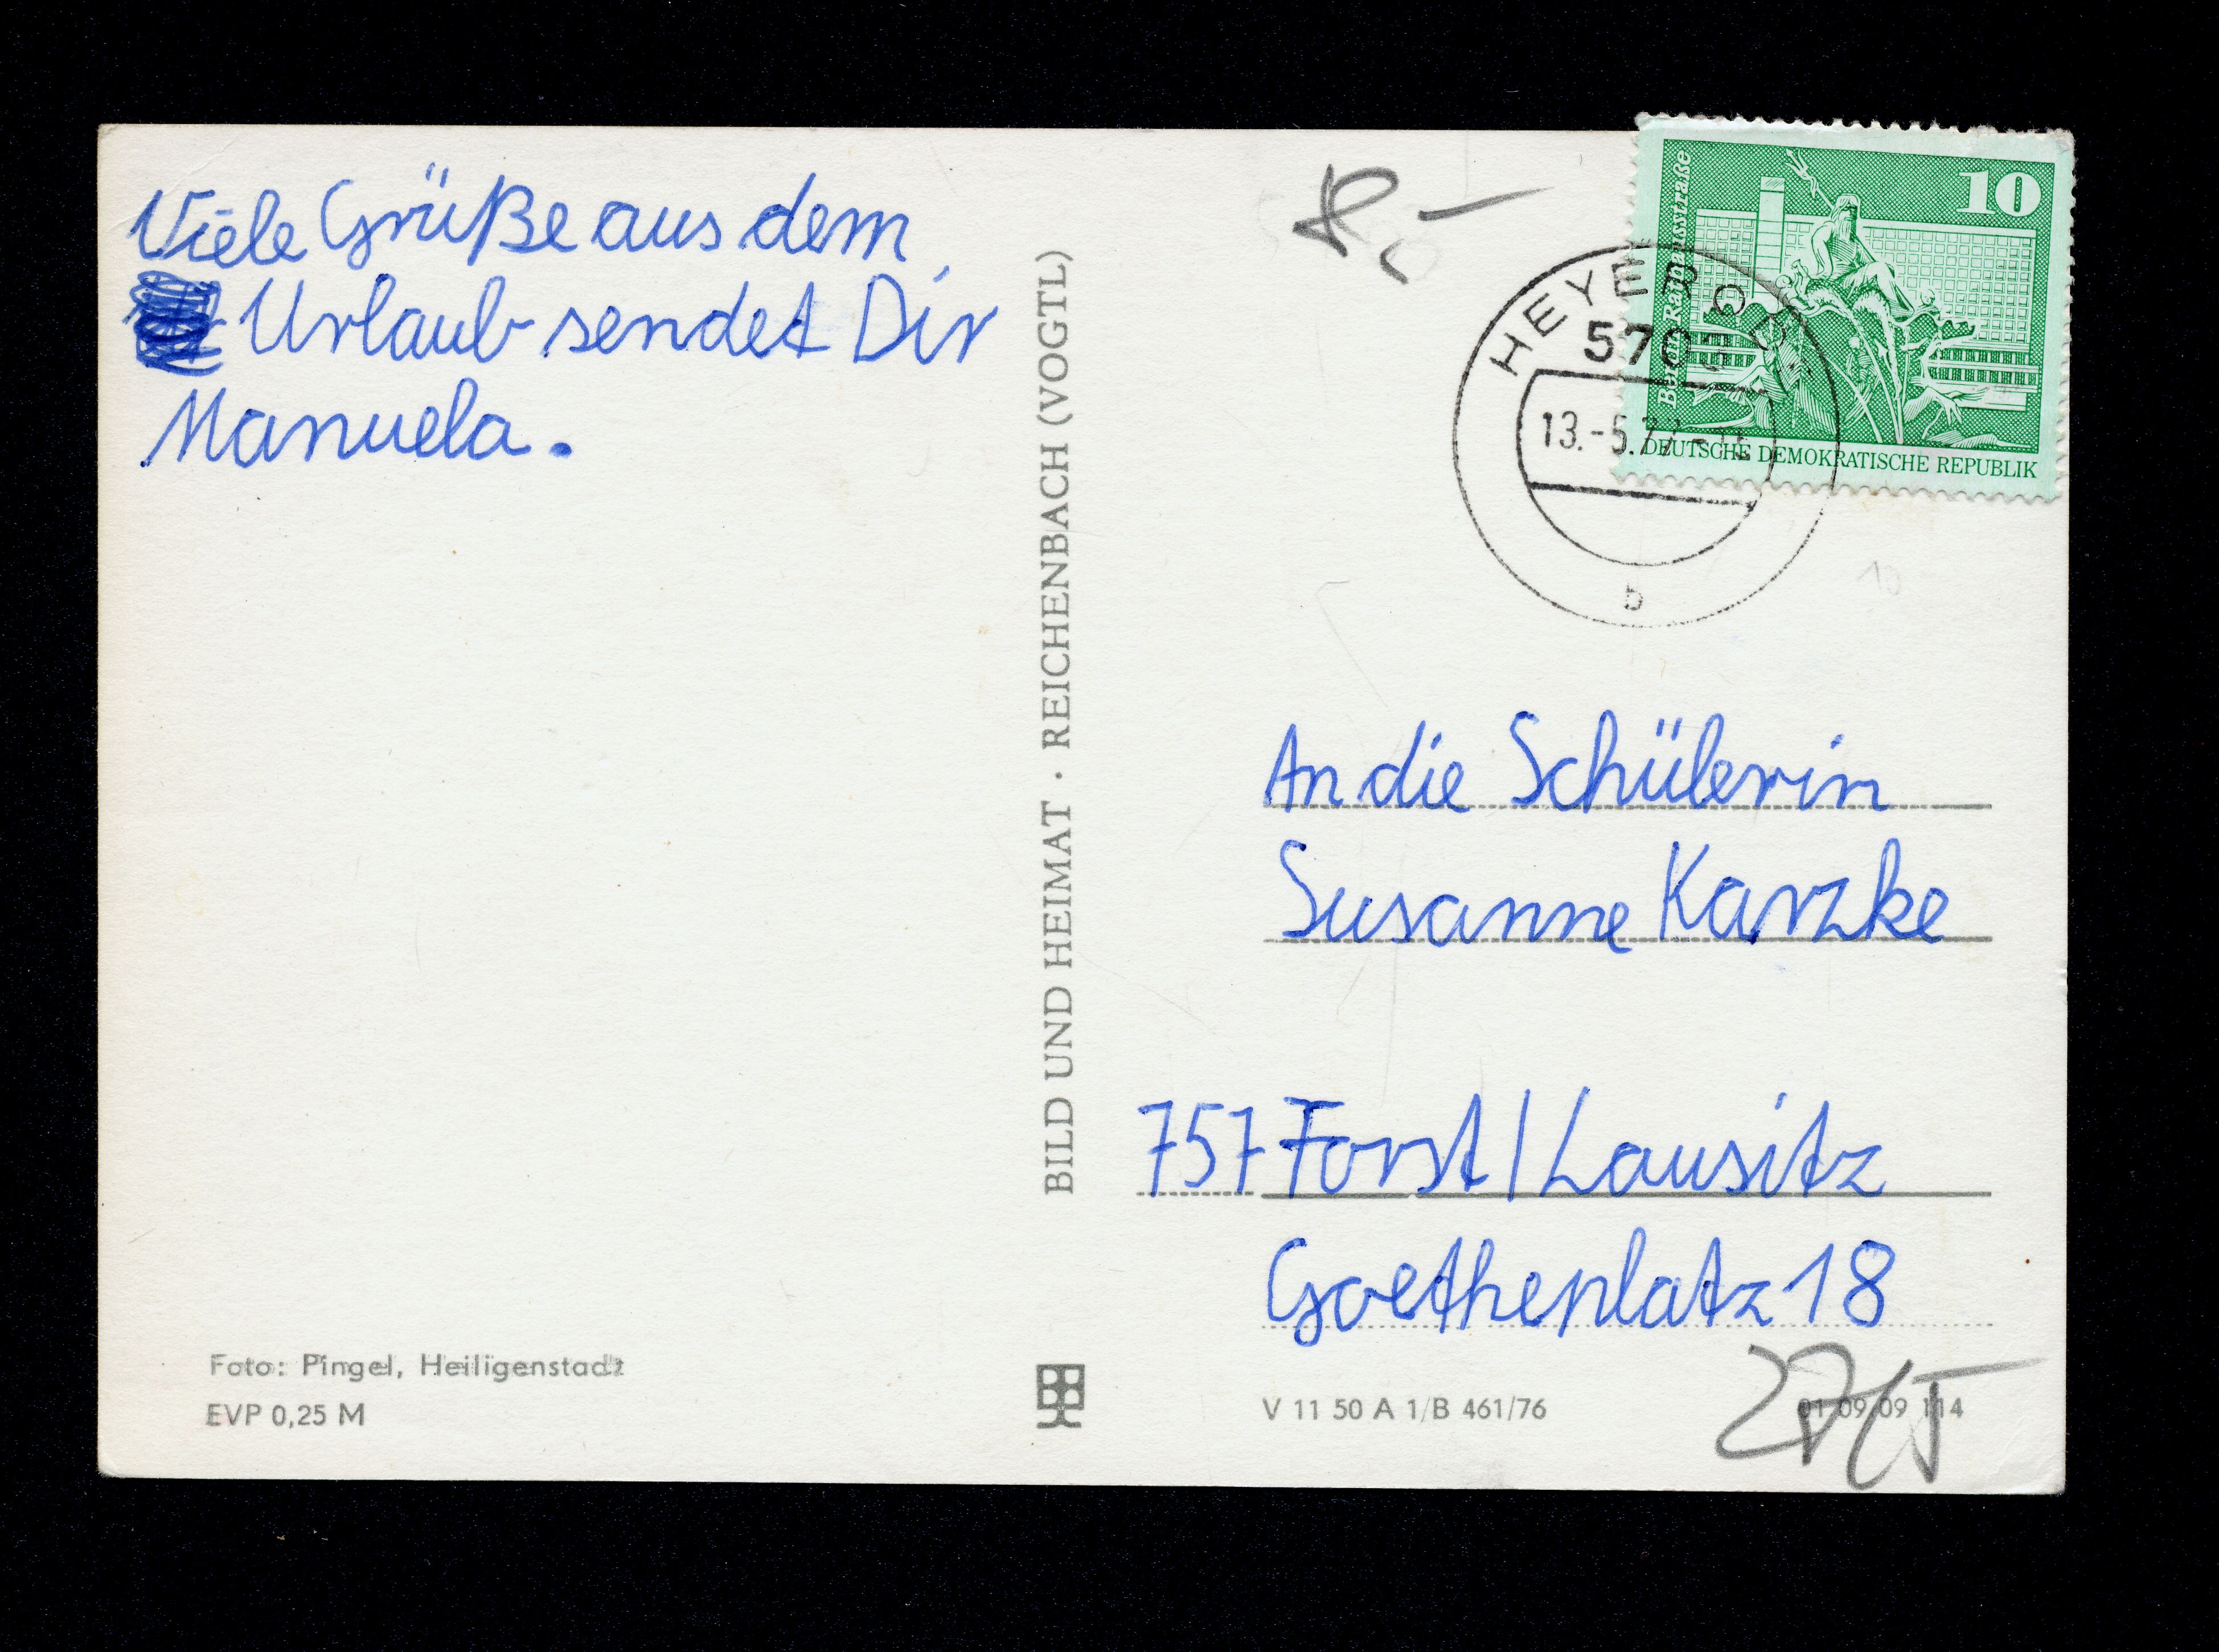 Viele Grüße aus dem
Urlaub sendet Dir
Manuela.
Foto: Pingel, Heiligenstadt
EVP 0,25 M
BILD UND HEIMAT · REICHENBACH (VOGTL)
8,-
10
Berlin Rathausstraße
DEUTSCHE DEMOKRATISCHE REPUBLIK
HEYEROD
5703
13.-5.77
b
An die Schülerin
Susanne Karzke
757 Forst/Lausitz
Goetheplatz 18
V 11 50 A 1/B 461/76
01 09 09 114